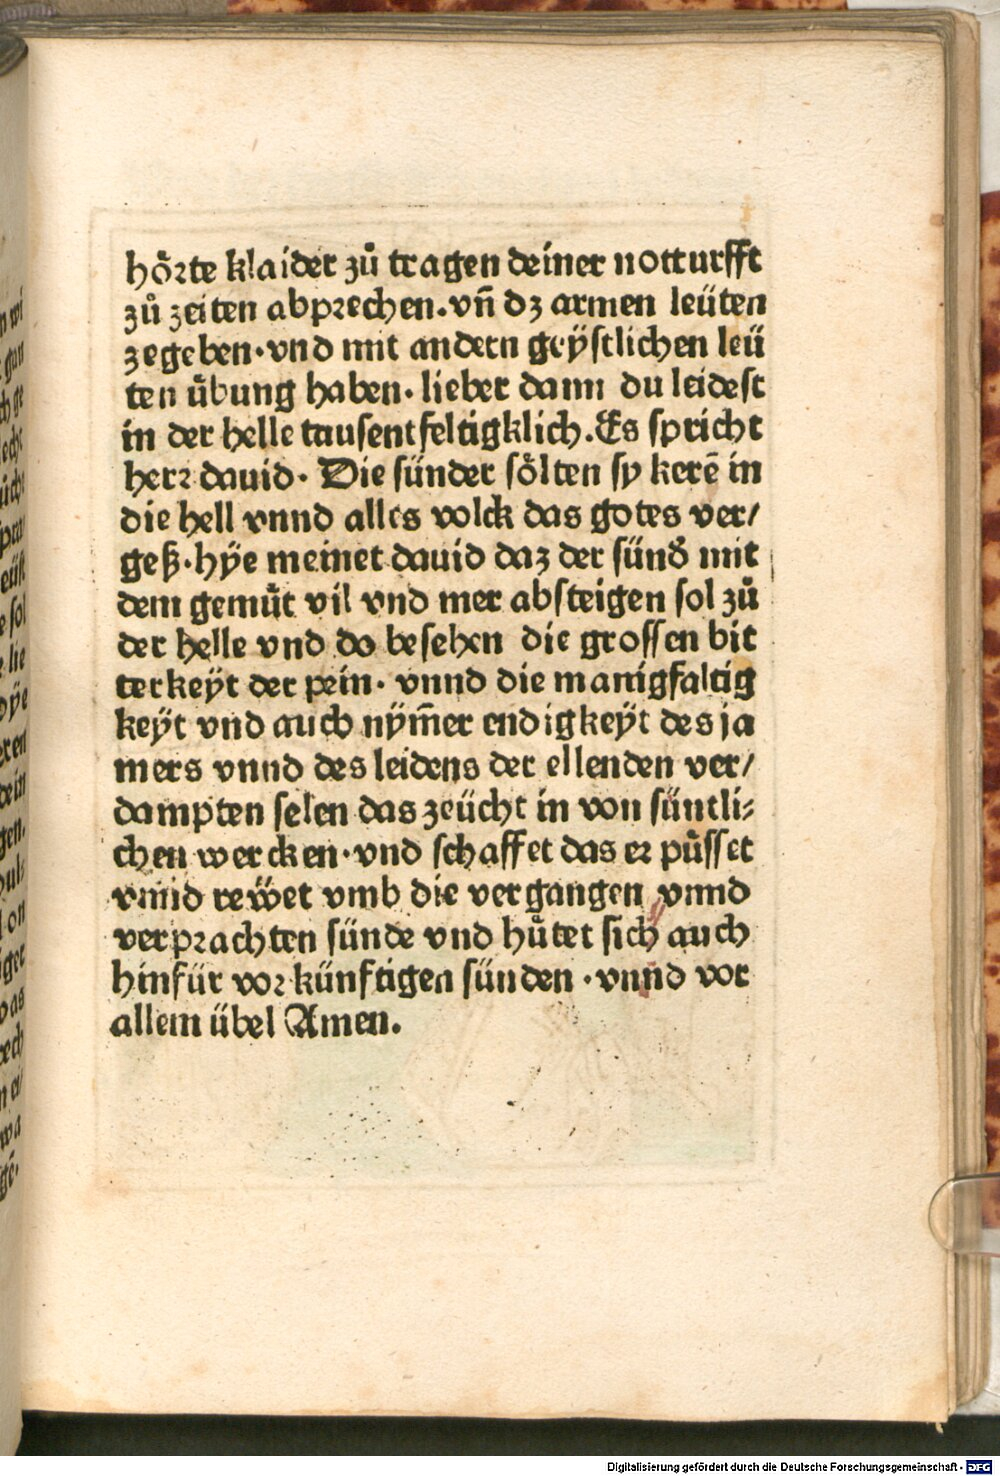 hoͤꝛte klaider zuͦ tragen deiner notturfft
zuͦ zeiten abpꝛechen. vn̄ dz armen leüten
zegeben · vnd mit andern geÿstlichen leü
ten uͤbung haben · lieber dann du leidest
in der helle tausentfeltigklich. Es spricht
herꝛ dauid · Die sünder soͤlten sy kerē in
die hell vnnd alles volck das gotes ver/
geß · hÿe meinet dauid daz der sünd̛ mit
dem gemuͤt vil vnd mer absteigen sol zuͦ
der helle vnd do besehen die grossen bit
terkeÿt der pein · vnnd die manigfaltig
keÿt vnd auch nÿm̄er endigkeÿt des ja
mers vnnd des leidens der ellenden ver/
dampten selen das zeücht in von süntli⸗
chen wercken · vnd schaffet das eꝛ puͤsset
vnnd reẅet vmb die vergangen vnnd
verpꝛachten sünde vnd huͤtet sich auch
hinfür voꝛ künftigen sünden · vnnd vor
allem übel Amen.
Digitalisierung gefördert durch die Deutsche Forschungsgemeinschaft - DFG